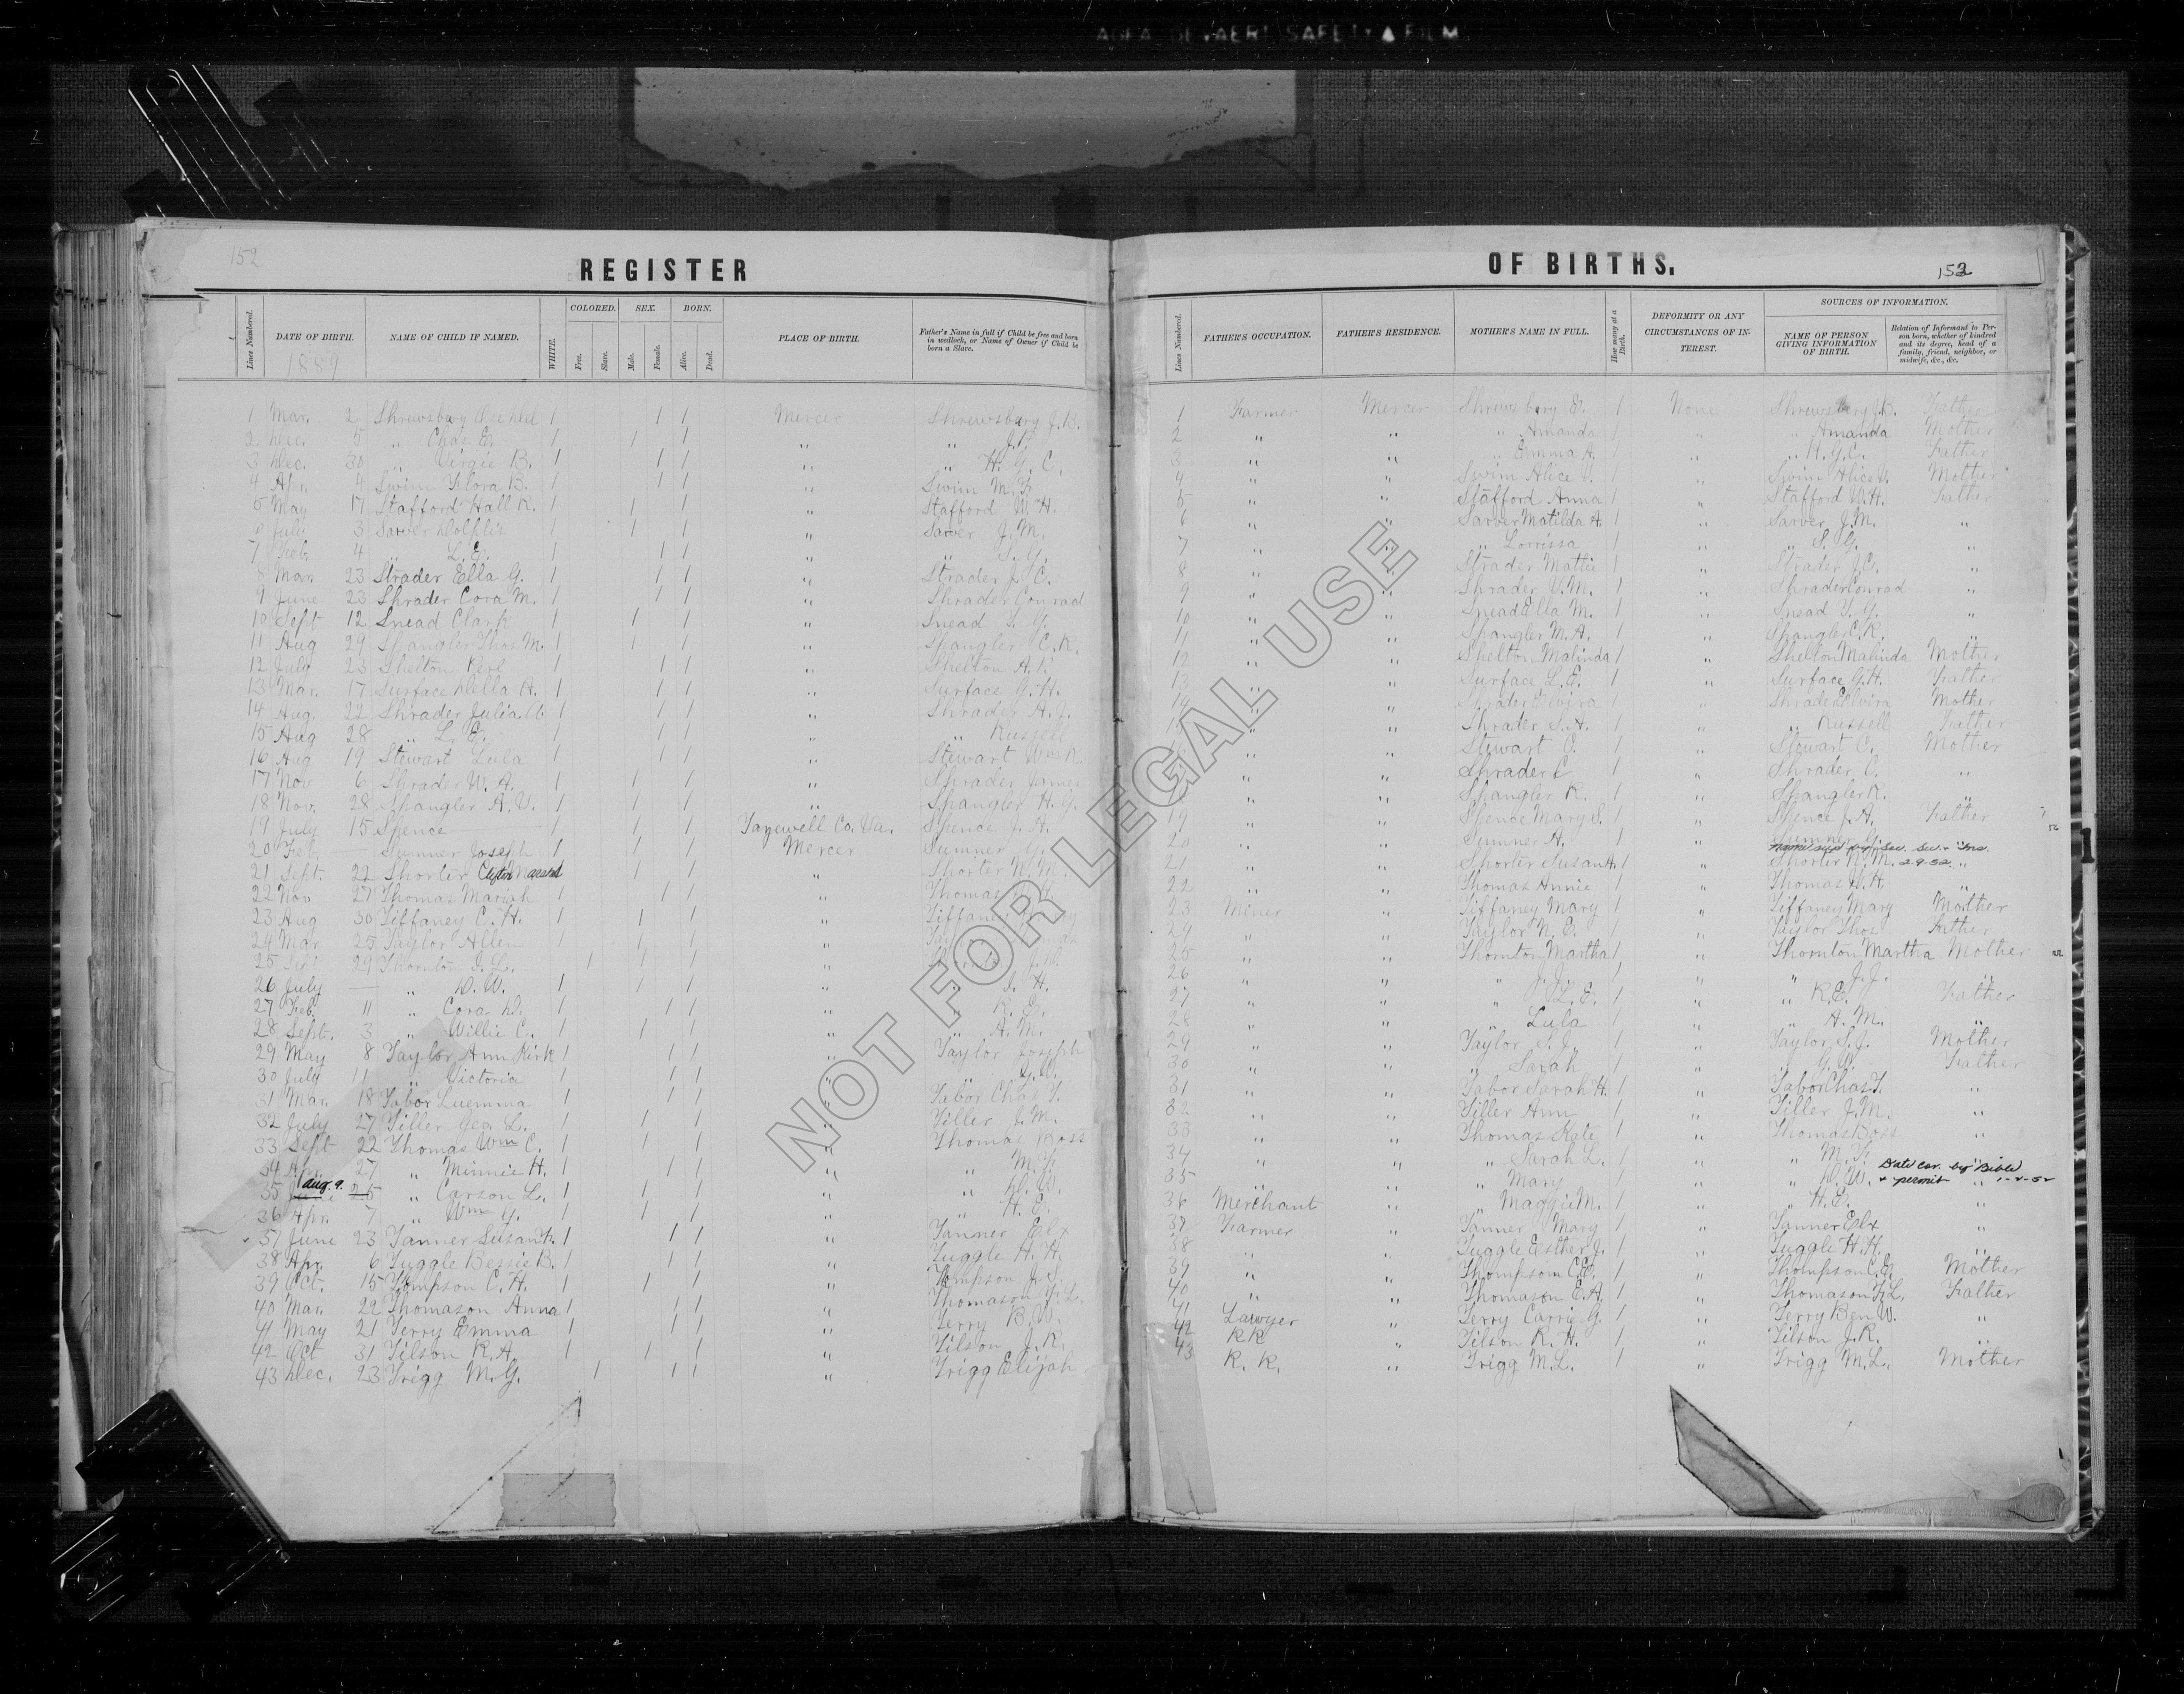 AGFA GEVAERT SAFETY ▲ FILM
152
REGISTER
OF BIRTHS.
152
Lines Numbered.
DATE OF BIRTH.
1889
NAME OF CHILD IF NAMED.
WHITE.
COLORED.
Free.
Slave.
SEX.
Male.
Female.
BORN.
Alive.
Dead.
PLACE OF BIRTH.
Father's Name in full if Child be free and born in wedlock, or Name of Owner if Child be born a Slave.
Lines Numbered.
FATHER'S OCCUPATION.
FATHER'S RESIDENCE.
MOTHER'S NAME IN FULL.
How many at a Birth.
DEFORMITY OR ANY CIRCUMSTANCES OF INTEREST.
SOURCES OF INFORMATION.
NAME OF PERSON GIVING INFORMATION OF BIRTH.
Relation of Informant to Person born, whether of kindred and its degree, head of a family, friend, neighbor, or midwife, &c., &c.
1 Mar. 2 Shrewsbury 1 1 1 Mercer Shrewsbury J.B. 1 Farmer Mercer Shrewsbury E. 1 None Shrewsbury J.B. Father
2 Dec. 5 " Chas E. 1 1 1 " " 2 " " " Amanda 1 " " Amanda Mother
3 Dec. 30 " Virgie B. 1 1 1 " " H. G. C. 3 " " " Emma A. 1 " " H.G.C. Father
4 Apr. 4 Swim Flora B. 1 1 1 " Swim M. F. 4 " " Swim Alice V. 1 " Swim Alice V. Mother
5 May 17 Stafford Hall R. 1 1 1 " Stafford W. H. 5 " " Stafford Anna 1 " Stafford W.H. Father
6 July 3 Sarver 1 1 1 " Sarver J. M. 6 " " Sarver Matilda A. 1 " Sarver J.M. "
7 Feb. 4 " L. E. 1 1 1 " " S. G. 7 " " " Lorrissa 1 " " S. G. "
8 Mar. 23 Strader Ella G. 1 1 1 " Strader J. C. 8 " " Strader Mattie 1 " Strader J.C. "
9 June 23 Shrader Cora M. 1 1 1 " Shrader Conrad 9 " " Shrader V.M. 1 " Shrader Conrad "
10 Sept 12 Snead Clark 1 1 1 " Snead T. G. 10 " " Snead Ella M. 1 " Snead T. G. "
11 Aug 29 Spangler Thos M. 1 1 1 " Spangler C.R. 11 " " Spangler M. A. 1 " Spangler C.R. "
12 July 23 Shelton Perl 1 1 1 " Shelton A. R. 12 " " Shelton Malinda 1 " Shelton Malinda Mother
13 Mar. 17 Surface Della A. 1 1 1 " Surface G. H. 13 " " Surface L.E. 1 " Surface G.H. Father
14 Aug. 22 Shrader Julia A. 1 1 1 " Shrader A. J. 14 " " Shrader Elvira 1 " Shrader Elvira Mother
15 Aug 28 " L. E. 1 1 1 " " Russell " " Shrader S. A. 1 " " Russell Father
16 Aug 19 Stewart Lula 1 1 1 " Stewart Wm R. " " Stewart C. 1 " Stewart C. Mother
17 Nov 6 Shrader W. A. 1 1 1 " Shrader James " " Shrader C 1 " Shrader C. "
18 Nov. 28 Spangler A. V. 1 1 1 " Spangler H. G. " " Spangler R. 1 " Spangler R. "
19 July 15 Spence 1 1 1 Tazewell Co. Va. Spence J. A. 19 " " Spence Mary S. 1 " Spence J. A. Father
20 Feb — Sumner Joseph 1 1 1 Mercer Sumner G. 20 " " Sumner A. 1 " Sumner G.
21 Sept. 22 Shorter Clifton 1 1 " Shorter N. M. 21 " " Shorter Susan A. 1 " Shorter N. M. 2-9-52 "
22 Nov 27 Thomas Mariah 1 1 1 " Thomas W. H. 22 " " Thomas Annie 1 " Thomas W. H. "
23 Aug 30 Tiffaney C. H. 1 1 1 " 23 Miner " Tiffaney Mary 1 " Tiffaney Mary Mother
24 Mar 25 Taylor Allen 1 1 1 " 24 " " Taylor N. E. 1 " Taylor Thos Father
25 29 Thornton J. L. 1 1 1 " 25 " " Thornton Martha 1 " Thornton Martha Mother
26 July — " D. W. 1 1 1 " " 26 " " " J. J. 1 " " J. J. "
27 Feb. 11 " Cora D. 1 1 1 " " R. E. 27 " " " L. E. 1 " " R.E. Father
28 Sept. 3 " Willie C. 1 1 1 " " A. M. 28 " " " Lula 1 " " A. M. "
29 May 8 Taylor Ann Kirk 1 1 1 " Taylor Joseph 29 " " Taylor S. J. 1 " Taylor S.J. Mother
30 July 11 " Victoria 1 1 1 " " G. W. 30 " " " Sarah 1 " " Father
31 Mar. 18 Tabor Luemma 1 1 1 " Tabor Chas T. 31 " " Tabor Sarah H. 1 " Tabor Chas T. "
32 July 27 Tiller Geo. L. 1 1 1 " Tiller J. M. 32 " " Tiller Ann 1 " Tiller J.M. "
33 Sept 22 Thomas Wm C. 1 1 1 " Thomas Boss 33 " " Thomas Kate 1 " Thomas Boss "
34 Apr. 27 " Minnie H. 1 1 1 " " M. F. 34 " " " Sarah L. 1 " " M. F. "
35 Aug. 9. 25 " Carson L. 1 1 1 " " D. W. 35 " " " Mary 1 " " D. W. Date cor. by Bible + permit 1-4-52 "
36 Apr. 7 " Wm G. 1 1 1 " " H. E. 36 Merchant " " Maggie M. 1 " " H. E. "
37 June 23 Tanner Susan H. 1 1 1 " Tanner Elx 37 Farmer " Tanner Mary 1 " Tanner Elx "
38 Apr. 6 Tuggle Bessie B. 1 1 1 " Tuggle H. H. 38 " " Tuggle Esther J. 1 " Tuggle H. H. "
39 Oct. 15 Tompson C. H. 1 1 1 " Tompson 39 " " Thompson C.E. 1 " Thompson C.E. Mother
40 Mar. 22 Thomason Anna 1 1 1 " Thomason F. L. 40 " " Thomason E. A. 1 " Thomason F.L. Father
41 May 21 Terry Emma 1 1 1 " Terry B. W. 41 Lawyer " Terry Carrie G. 1 " Terry Ben W. "
42 Oct 31 Tilson R. A. 1 1 1 " Tilson J. R. 42 RR " Tilson R. H. 1 " Tilson J. R. "
43 Dec. 23 Trigg M. G. 1 1 1 " Trigg Elijah 43 R. R. " Trigg M.L. 1 " Trigg M.L. Mother
NOT FOR LEGAL USE